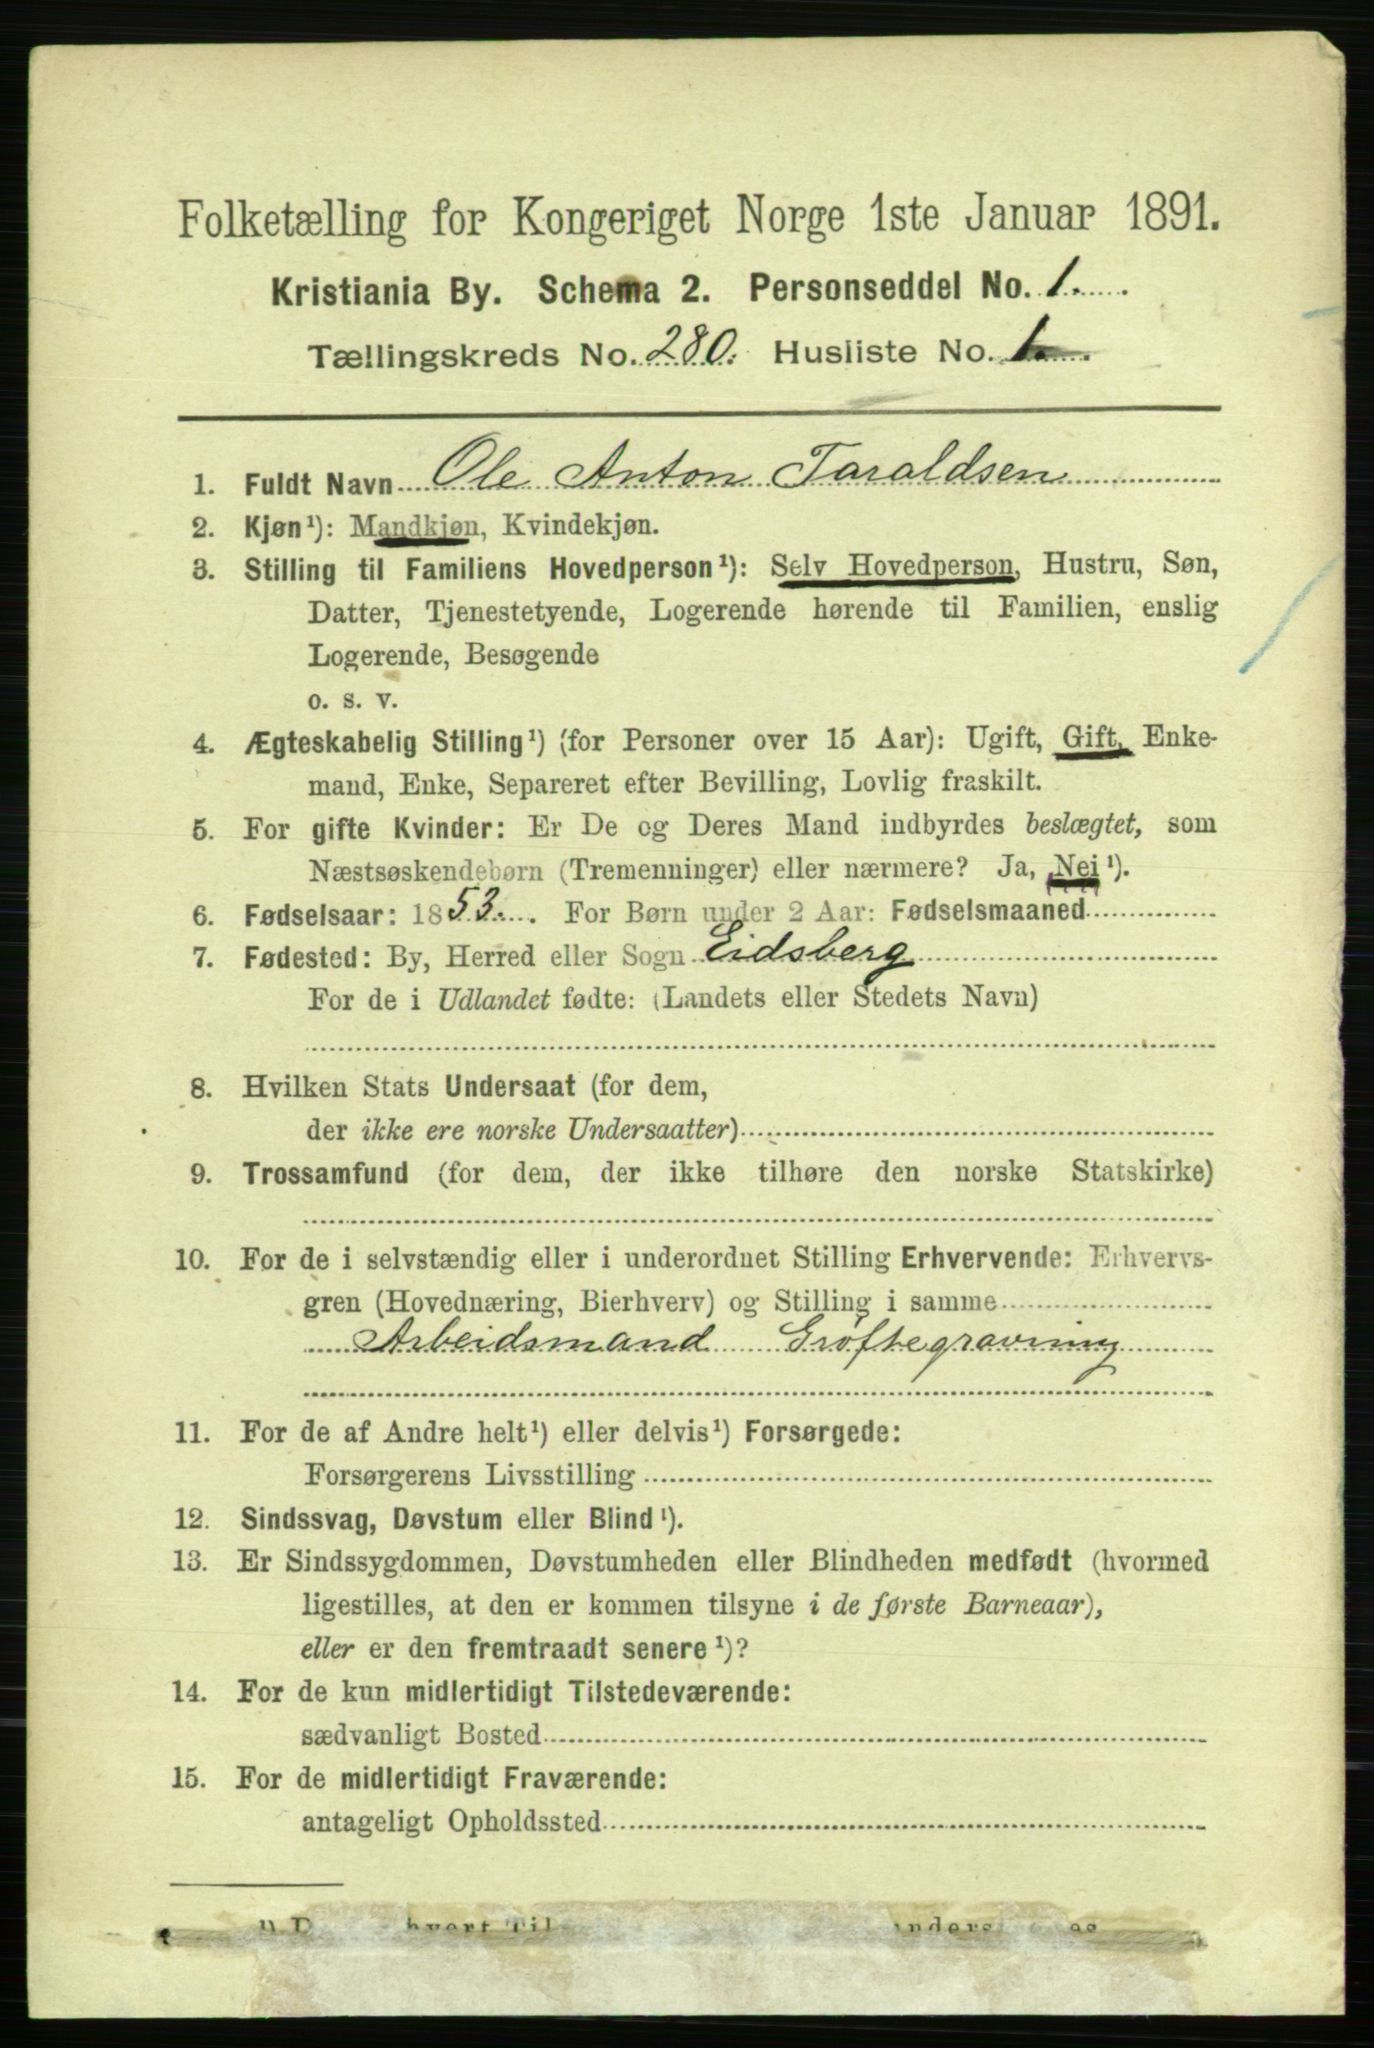 Folketælling for Kongeriget Norge 1ste Januar 1891.
Kristiania By. Schema 2. Personseddel No. 1.
Tællingskreds No. 280. Husliste No. 1.
1. Fuldt Navn Ole Anton Taraldsen
2. Kjøn¹): Mandkjøn, Kvindekjøn.
3. Stilling til Familiens Hovedperson¹): Selv Hovedperson, Hustru, Søn,
Datter, Tjenestetyende, Logerende hørende til Familien, enslig
Logerende, Besøgende
o. s. v.
4. Ægteskabelig Stilling¹) (for Personer over 15 Aar): Ugift, Gift, Enke-
mand, Enke, Separeret efter Bevilling, Lovlig fraskilt.
5. For gifte Kvinder: Er De og Deres Mand indbyrdes beslægtet, som
Næstsøskendebørn (Tremenninger) eller nærmere? Ja, Nei¹).
6. Fødselsaar: 1853. For Børn under 2 Aar: Fødselsmaaned
7. Fødested: By, Herred eller Sogn Eidsberg
For de i Udlandet fødte: (Landets eller Stedets Navn)
8. Hvilken Stats Undersaat (for dem,
der ikke ere norske Undersaatter)
9. Trossamfund (for dem, der ikke tilhøre den norske Statskirke)
10. For de i selvstændig eller i underordnet Stilling Erhvervende: Erhvervs-
gren (Hovednæring, Bierhverv) og Stilling i samme
Arbeidsmand Grøftegravning
11. For de af Andre helt¹) eller delvis¹) Forsørgede:
Forsørgerens Livsstilling
12. Sindssvag, Døvstum eller Blind¹).
13. Er Sindssygdommen, Døvstumheden eller Blindheden medfødt (hvormed
ligestilles, at den er kommen tilsyne i de første Barneaar),
eller er den fremtraadt senere¹)?
14. For de kun midlertidigt Tilstedeværende:
sædvanligt Bosted
15. For de midlertidigt Fraværende:
antageligt Opholdssted